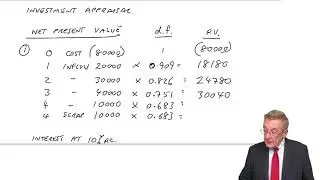 INVESTMENT APPRAISAL
NET PRESENT VALUE d.f. P.V.
① 0 COST (80000) 1 (80000)
1 INFLOW 20000 × 0.909 = 18180
2 " 30000 × 0.826 = 24780
3 " 40000 × 0.751 = 30040
4 " 10000 × 0.683 =
4 SCRAP 10000 × 0.683 =
INTEREST AT 10%